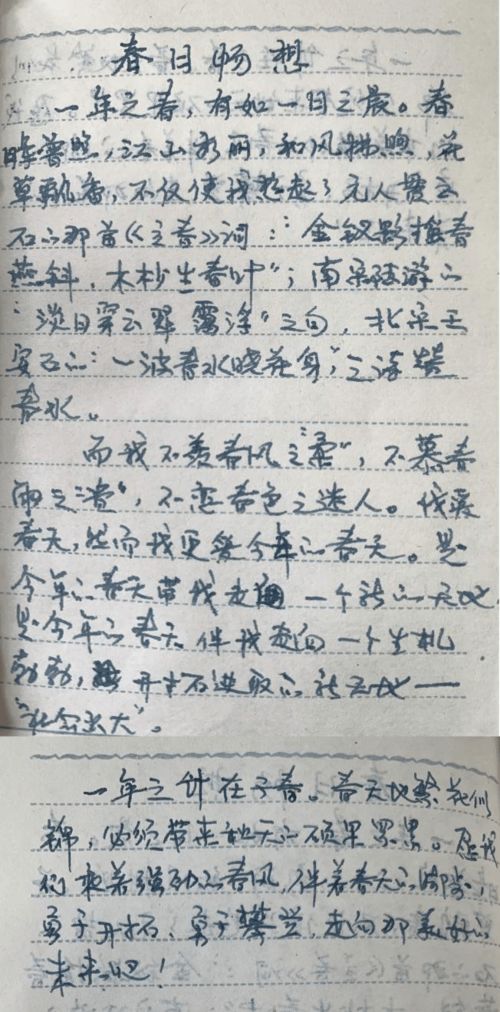 春日畅想
一年之春，有如一日之晨。春
晖普照，江山秀丽，和风拂煦，花
草飘香，不仅使我想起了元人贯云
石的那首《立春》词："金钗影摇春
燕斜，木杪生春叶"；南宋陆游的
"淡日穿云翠霭浮"之句，北宋王
安石的"一波春水晓花身"之诗
春水。
而我不羡春风之"柔"，不慕春
雨之"贵"，不恋春色之迷人。我爱
春天，然而我更爱今年的春天。是
今年的春天带我走向一个新的天地
是今年的春天伴我走向一个生机
勃勃，开拓进取的新天地——
"社会大"。
一年之计在于春。春天地繁花似
锦，必须带来秋天的硕果累累。愿我
们乘着强劲的春风，伴着春天的脚步，
勇于开拓、勇于攀登，走向那美好的
未来吧！